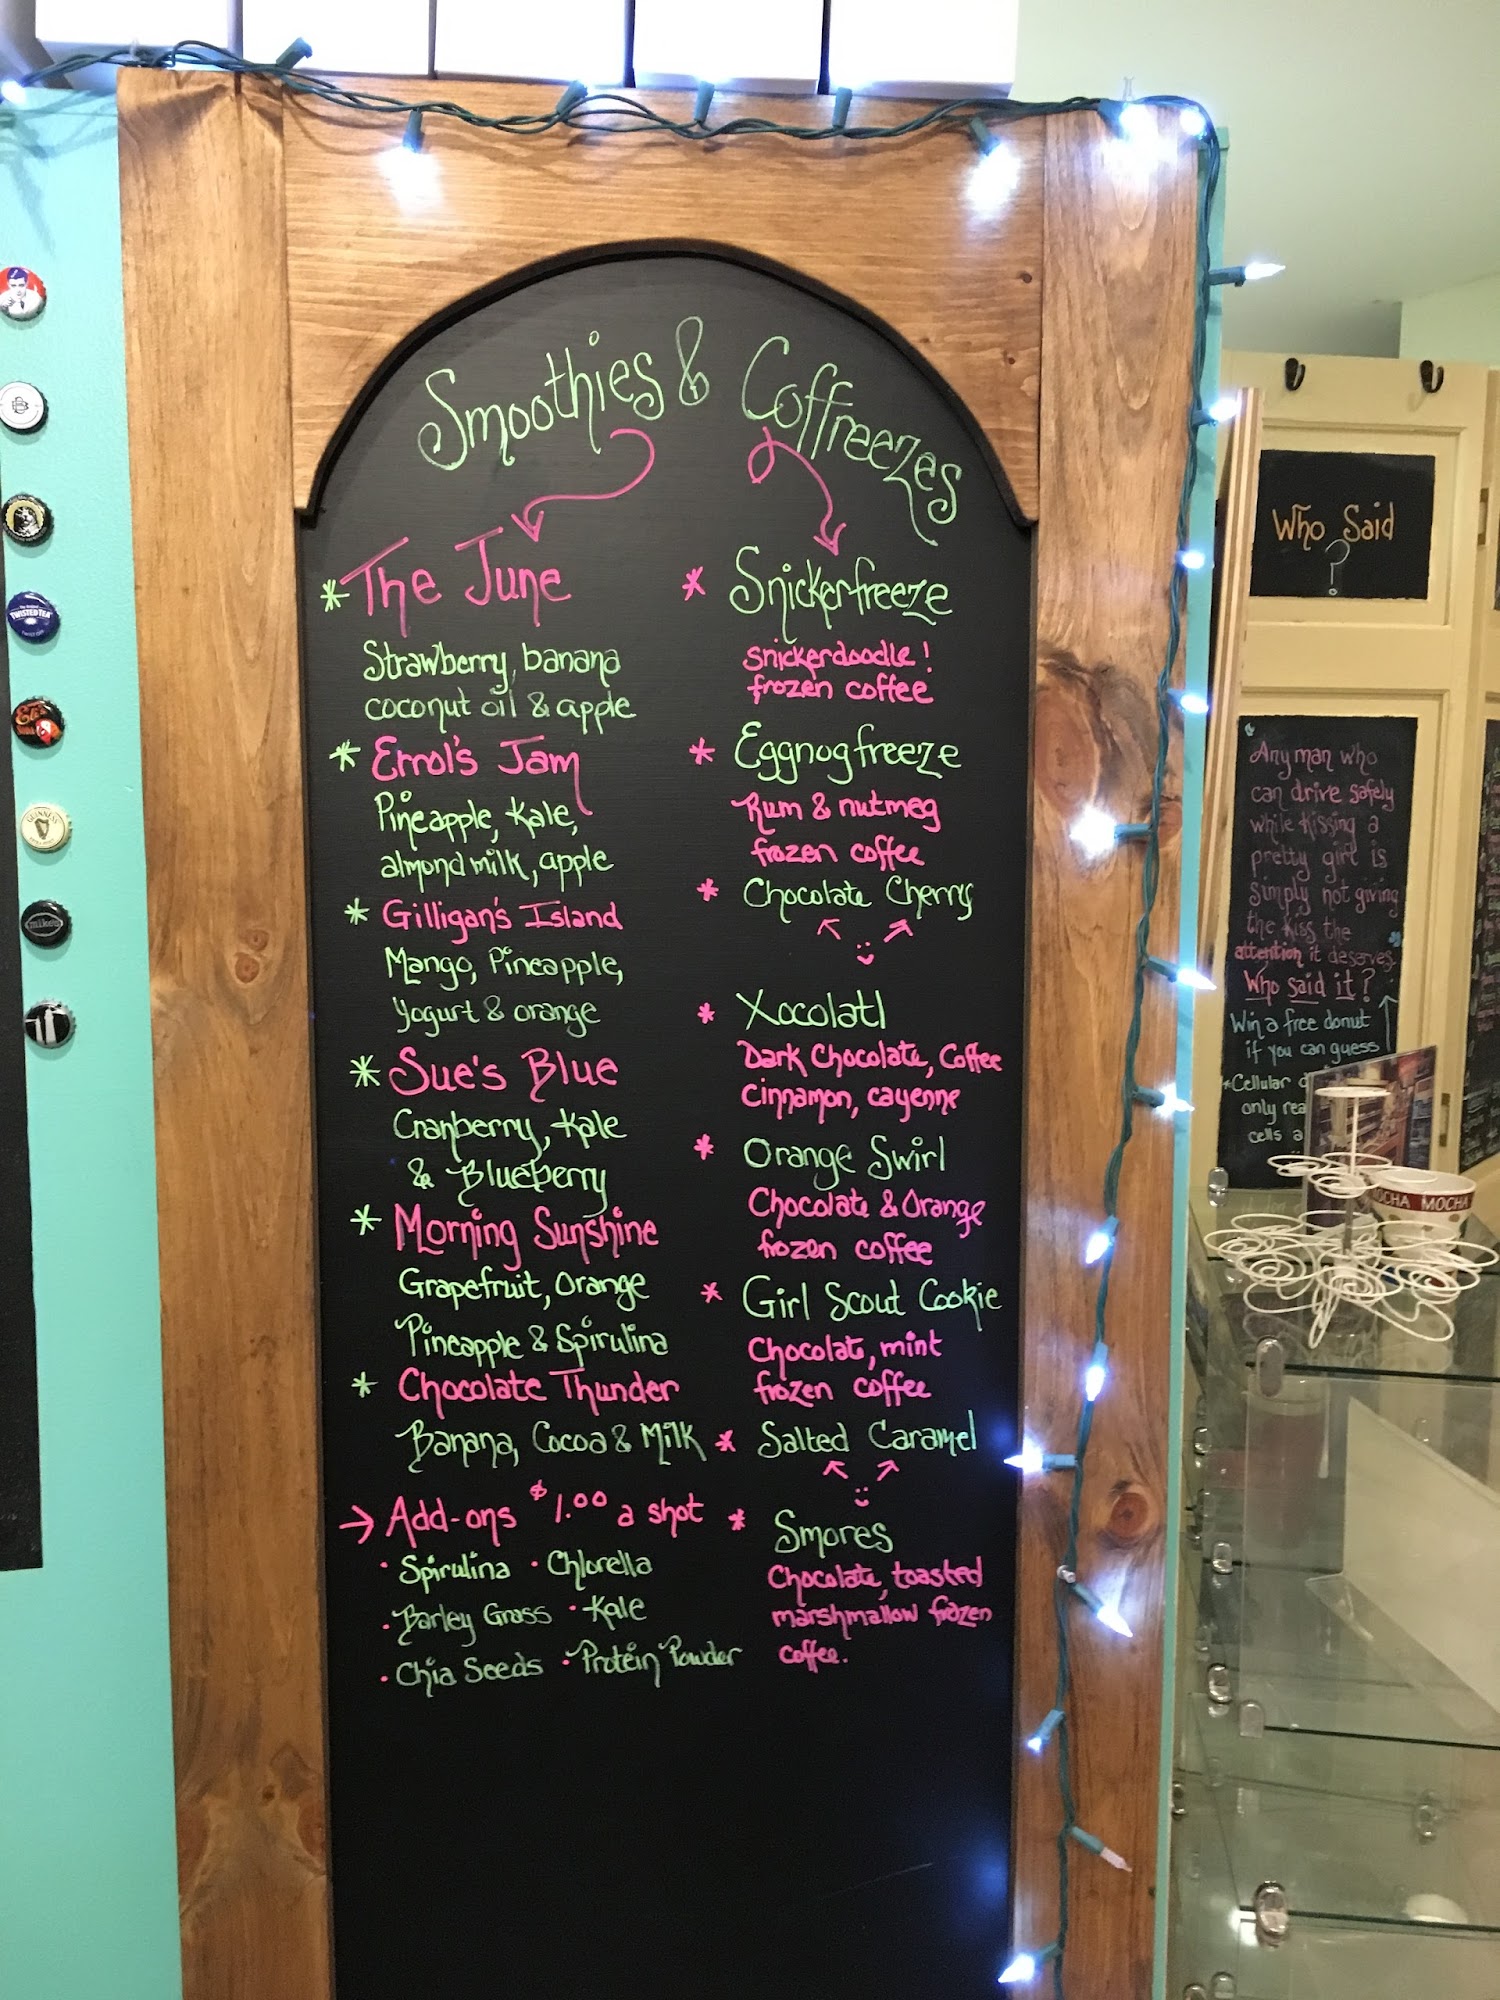 Smoothies & Coffreezes
* The June
Strawberry, banana
coconut oil & apple
* Errol's Jam
Pineapple, Kale,
almond milk, apple
* Gilligan's Island
Mango, Pineapple,
Yogurt & orange
* Sue's Blue
Cranberry, Kale
& Blueberry
* Morning Sunshine
Grapefruit, Orange
Pineapple & Spirulina
* Chocolate Thunder
Banana, Cocoa & Milk
→ Add-ons $1.00 a shot
· Spirulina · Chlorella
· Barley Grass · Kale
· Chia Seeds · Protein Powder
* Snickerfreeze
snickerdoodle!
frozen coffee
* Eggnogfreeze
Rum & nutmeg
frozen coffee
* Chocolate Cherry
* Xocolatl
Dark Chocolate, Coffee
Cinnamon, cayenne
* Orange Swirl
Chocolate & Orange
frozen coffee
* Girl Scout Cookie
Chocolate, mint
frozen coffee
* Salted Caramel
* Smores
Chocolate, toasted
marshmallow frozen
coffee.
Who Said
?
Any man who
can drive safely
while kissing a
pretty girl is
simply not giving
the kiss the
attention it deserves.
Who said it?
Win a free donut
if you can guess
*Cellular
only
cells
MOCHA MOCHA
TWISTED TEA
GUINNESS
mike's